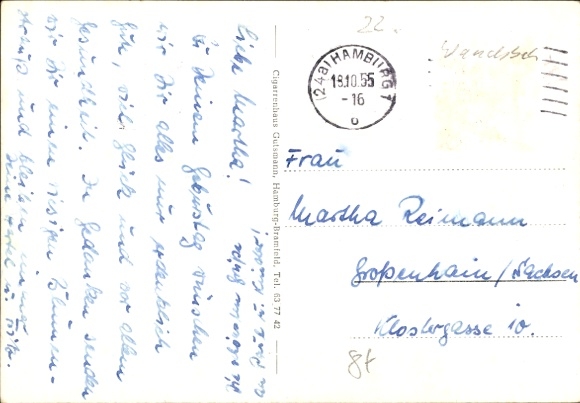 Liebe Martha!
Zu Deinem Geburtstag wünschen
wir Dir alles nur erdenklich
Gute, viel Glück und vor allem
Gesundheit. In Gedanken senden
wir Dir einen riesigen Blumen-
strauß und bleiben immer
Deine
22.
(24a) HAMBURG 7
19.10.55
-16
o
Wandsbek
Cigarrenhaus Gutsmann, Hamburg-Bramfeld, Tel. 63 77 42
Frau
Martha Reimann
Großenhain/Sachsen
Klostergasse 10.
8f